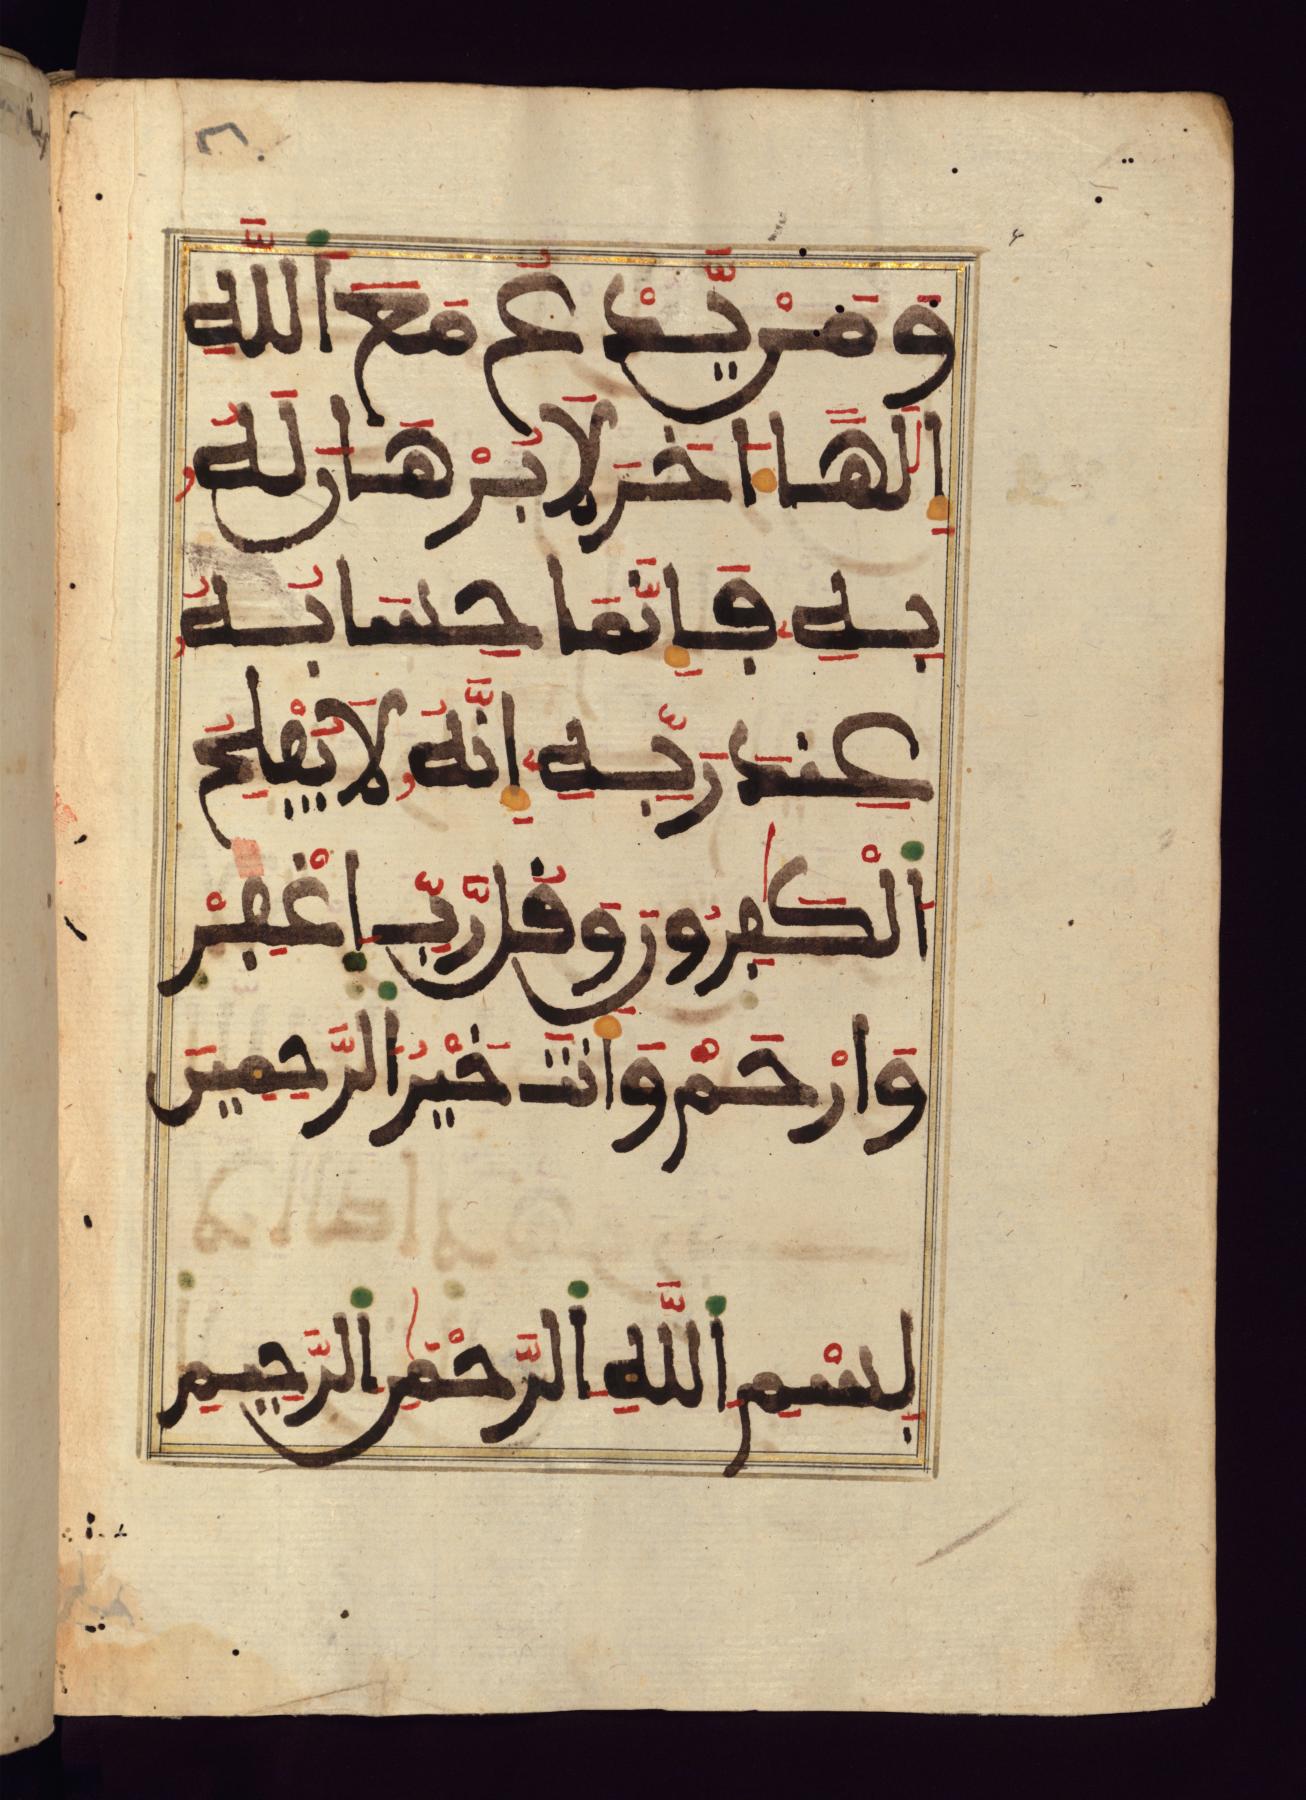 وَمَنْ يَّدْعُ مَعَ اَللَّهِ
إِلَٰهًا اخَرَ لَا بُرْهَانَ لَهُ
بِهِ فَإِنَّمَا حِسَابُهُ
عِندَ رَبِّهِ إِنَّهُ لَا يُفْلِحُ
اُلْكَٰفِرُونَ وَقُل رَّبِّ اِغْفِرْ
وَارْحَمْ وَأَنتَ خَيْرُ الرَّحِمِينَ
بِسْمِ اِللَّهِ اِلرَّحْمَٰنِ اِلرَّحِيمِ